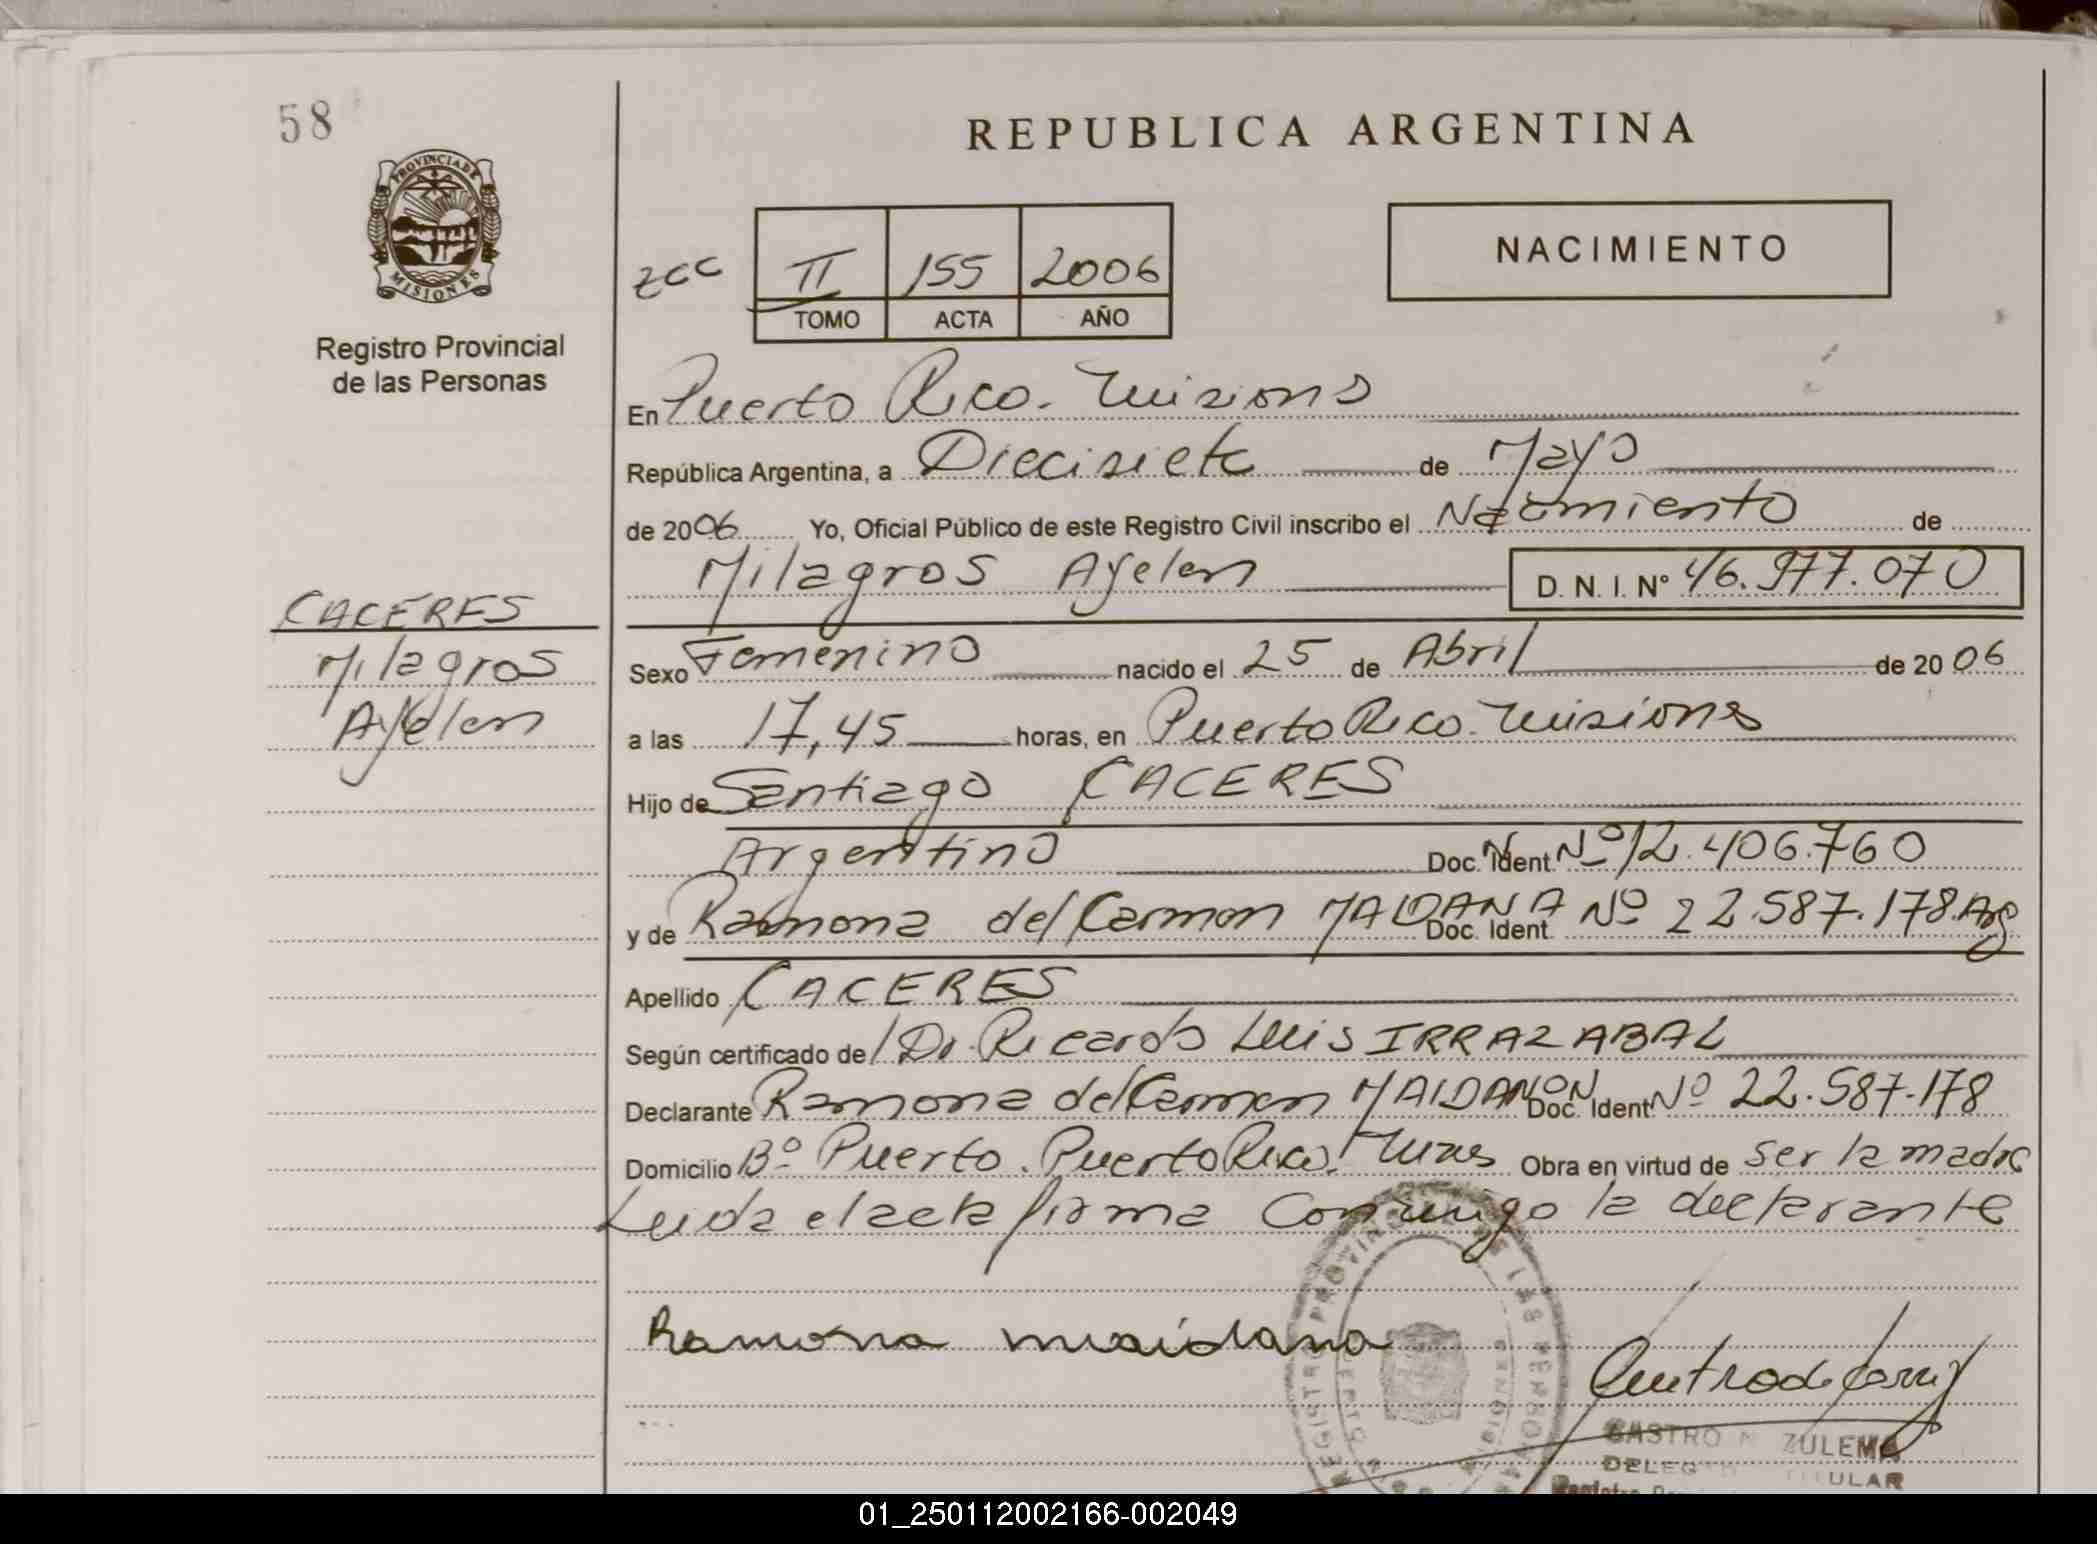 58
REPUBLICA ARGENTINA
PROVINCIA DE
MISIONES
Registro Provincial
de las Personas
zcc II 155 2006
TOMO ACTA AÑO
NACIMIENTO
En Puerto Rico. Misiones
República Argentina, a Diecisiete de Mayo
de 2006 Yo, Oficial Público de este Registro Civil inscribo el Nacimiento de
Milagros Ayelen D. N. I. Nº 46.977.070
CACERES
Milagros
Ayelen
Sexo Femenino nacido el 25 de Abril de 2006
a las 17,45 horas, en Puerto Rico. Misiones
Hijo de Santiago CACERES
Argentino Doc. Ident. Nº 12.406.760
y de Ramona del Carmen MAIDANA Doc. Ident. Nº 22.587.178. Arg
Apellido CACERES
Según certificado de Dr. Ricardo Luis IRRAZABAL
Declarante Ramona del Carmen MAIDANA Doc. Ident Nº 22.587.178
Domicilio Bº Puerto. Puerto Rico. Mnes Obra en virtud de ser la madre
Leida el acta firma conmigo la declarante
Ramona maidana
REGISTRO PROVINCIAL DE LAS PERSONAS
PUERTO RICO MISIONES
CASTRO N ZULEMA
TITULAR
01_250112002166-002049